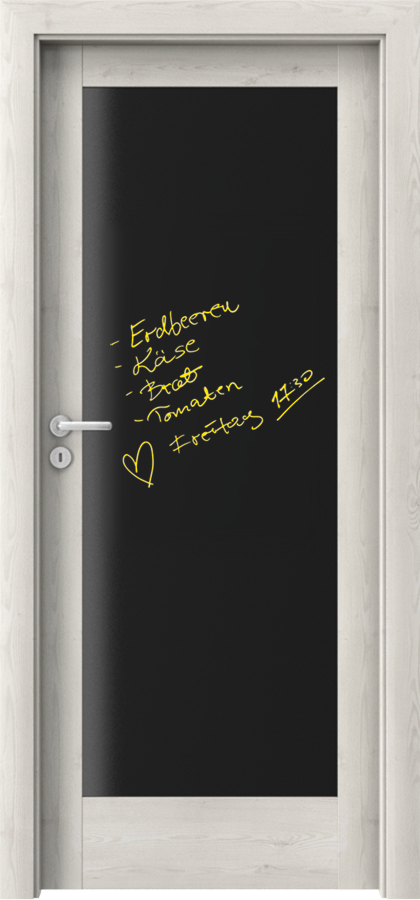 - Erdbeeren
- Käse
- Brot
- Tomaten
♡ Freitag 17:30